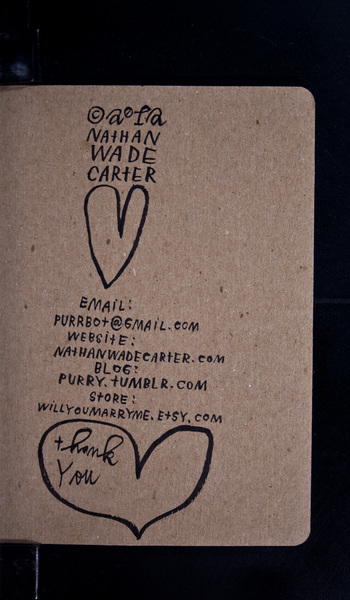 NATHAN
WADE
CARTER
EMAIL:
PURRBOT@GMAIL.COM
WEBSITE:
NATHANWADECARTER.COM
BLOG:
PURRY.TUMBLR.COM
STORE:
WILLYOUMARRYME.ETSY.COM
thank
You